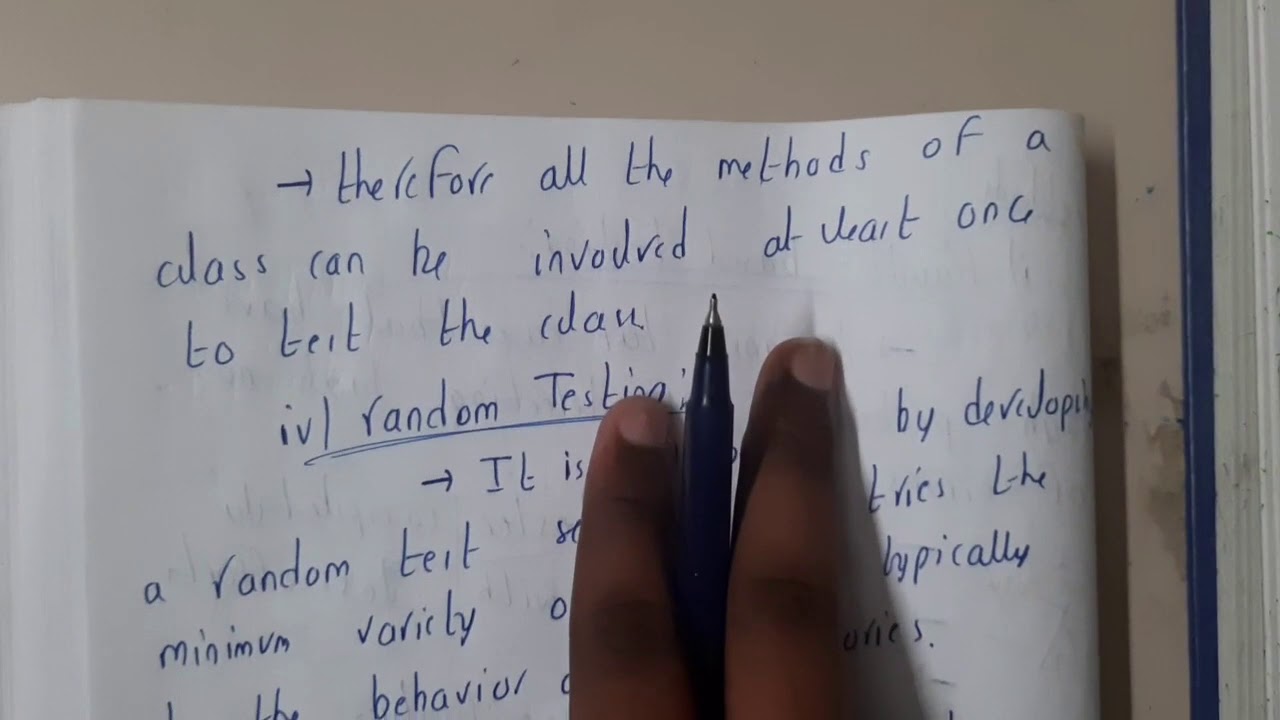 → therefore all the methods of a
class can be involved at least once
to test the class.
iv) random Testing:
→ It is by developing
a random test tries the
minimum variety typically
the behavior